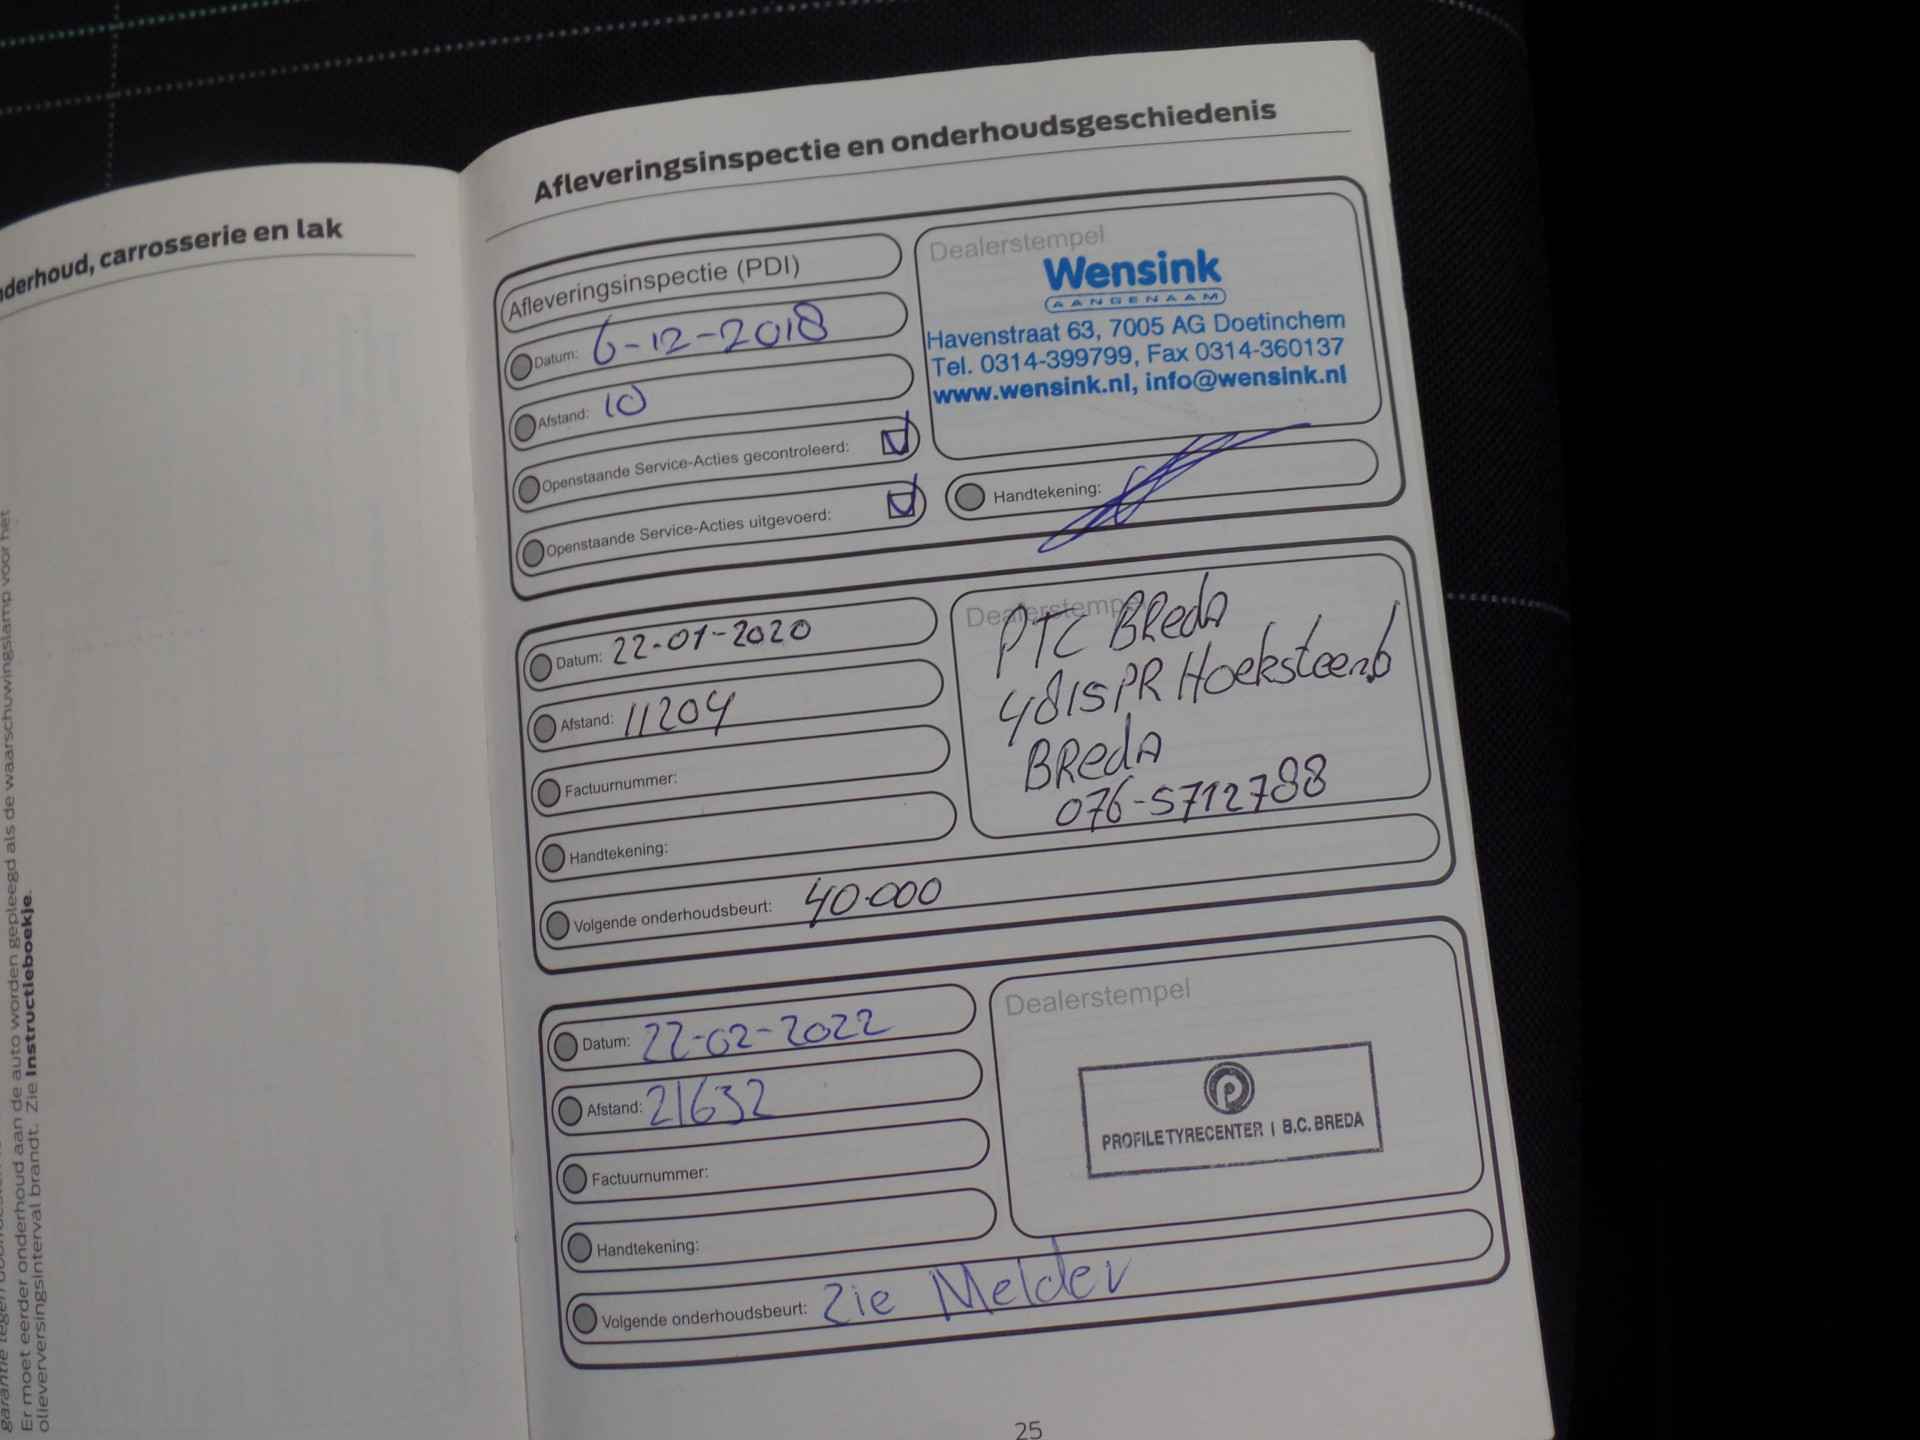 nderhoud, carrosserie en lak
als de waarschuwingslamp voor het
Er moet eerder onderhoud aan de auto worden gepleegd
olieverversingsinterval brandt. Zie Instructieboekje.
Afleveringsinspectie en onderhoudsgeschiedenis
Afleveringsinspectie (PDI)
Datum: 6-12-2018
Afstand: 10
Openstaande Service-Acties gecontroleerd:
Openstaande Service-Acties uitgevoerd:
Dealerstempel
Wensink
AANGENAAM
Havenstraat 63, 7005 AG Doetinchem
Tel. 0314-399799, Fax 0314-360137
www.wensink.nl, info@wensink.nl
Handtekening:
Datum: 22-01-2020
Afstand: 11204
Factuurnummer:
Handtekening:
Dealerstempel
PTC BRedA
4815PR Hoeksteen6
BRedA
076-5712788
Volgende onderhoudsbeurt: 40.000
Datum: 22-02-2022
Afstand: 21632
Factuurnummer:
Handtekening:
Dealerstempel
PROFILE TYRECENTER | B.C. BREDA
Volgende onderhoudsbeurt: Zie Melder
25